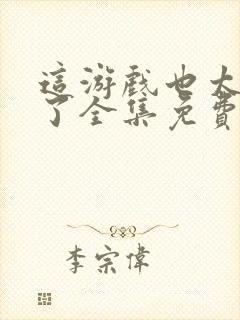 這游戲也太
了全集免費
李宗偉